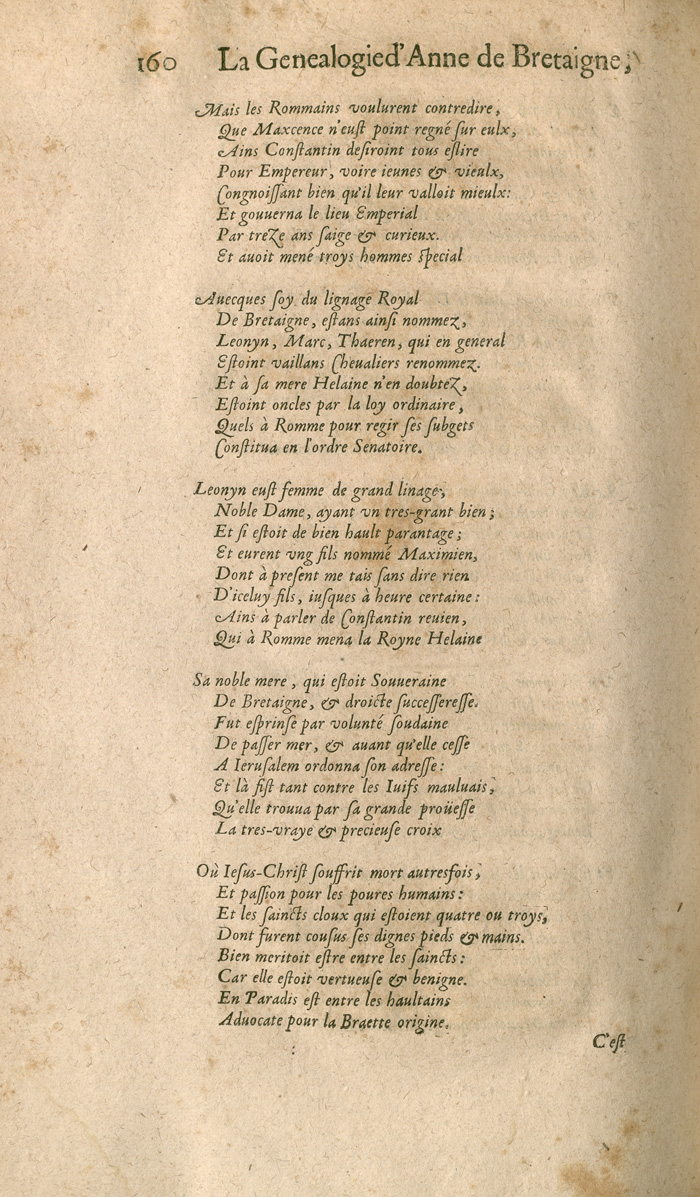 160 La Genealogied'Anne de Bretaigne,
Mais les Rommains voulurent contredire,
Que Maxcence n'eust point regné sur eulx,
Ains Constantin desiroint tous eslire
Pour Empereur, voire ieunes & vieulx,
Congnoissant bien qu'il leur valloit mieulx:
Et gouuerna le lieu Emperial
Par treze ans saige & curieux.
Et auoit mené troys hommes special
Auecques soy du lignage Royal
De Bretaigne, estans ainsi nommez,
Leonyn, Marc, Thaeren, qui en general
Estoint vaillans Cheualiers renommez.
Et à sa mere Helaine n'en doubtez,
Estoint oncles par la loy ordinaire,
Quels à Romme pour regir ses subgets
Constitua en l'ordre Senatoire.
Leonyn eust femme de grand linage,
Noble Dame, ayant vn tres-grant bien;
Et si estoit de bien hault parantage;
Et eurent vng fils nommé Maximien,
Dont à present me tais sans dire rien
D'iceluy fils, iusques à heure certaine:
Ains à parler de Constantin reuien,
Qui à Romme mena la Royne Helaine
Sa noble mere, qui estoit Souueraine
De Bretaigne, & droicte successeresse.
Fut esprinse par volunté soudaine
De passer mer, & auant qu'elle cesse
A Ierusalem ordonna son adresse:
Et là fist tant contre les Iuifs mauluais,
Qu'elle trouua par sa grande proüesse
La tres-vraye & precieuse croix
Où Iesus-Christ souffrit mort autresfois,
Et passion pour les poures humains:
Et les saincts cloux qui estoient quatre ou troys,
Dont furent cousus ses dignes pieds & mains.
Bien meritoit estre entre les saincts:
Car elle estoit vertueuse & benigne.
En Paradis est entre les haultains
Aduocate pour la Braette origine.
C'est